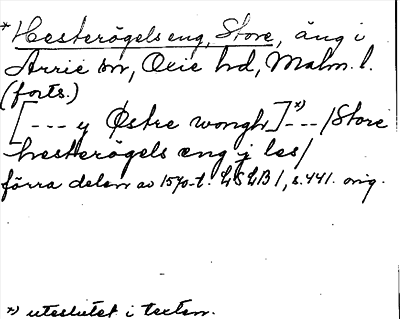 * Hesterögels eng, Store, äng i
Arrie sn, Oxie hd, Malm. l.
(forts.)
[--- y Østre wongh]*)--- /Store
hesterögels eng j les/
förra delen av 1570-t. LSLB I, s. 441. orig.
*) uteslutet i texten.